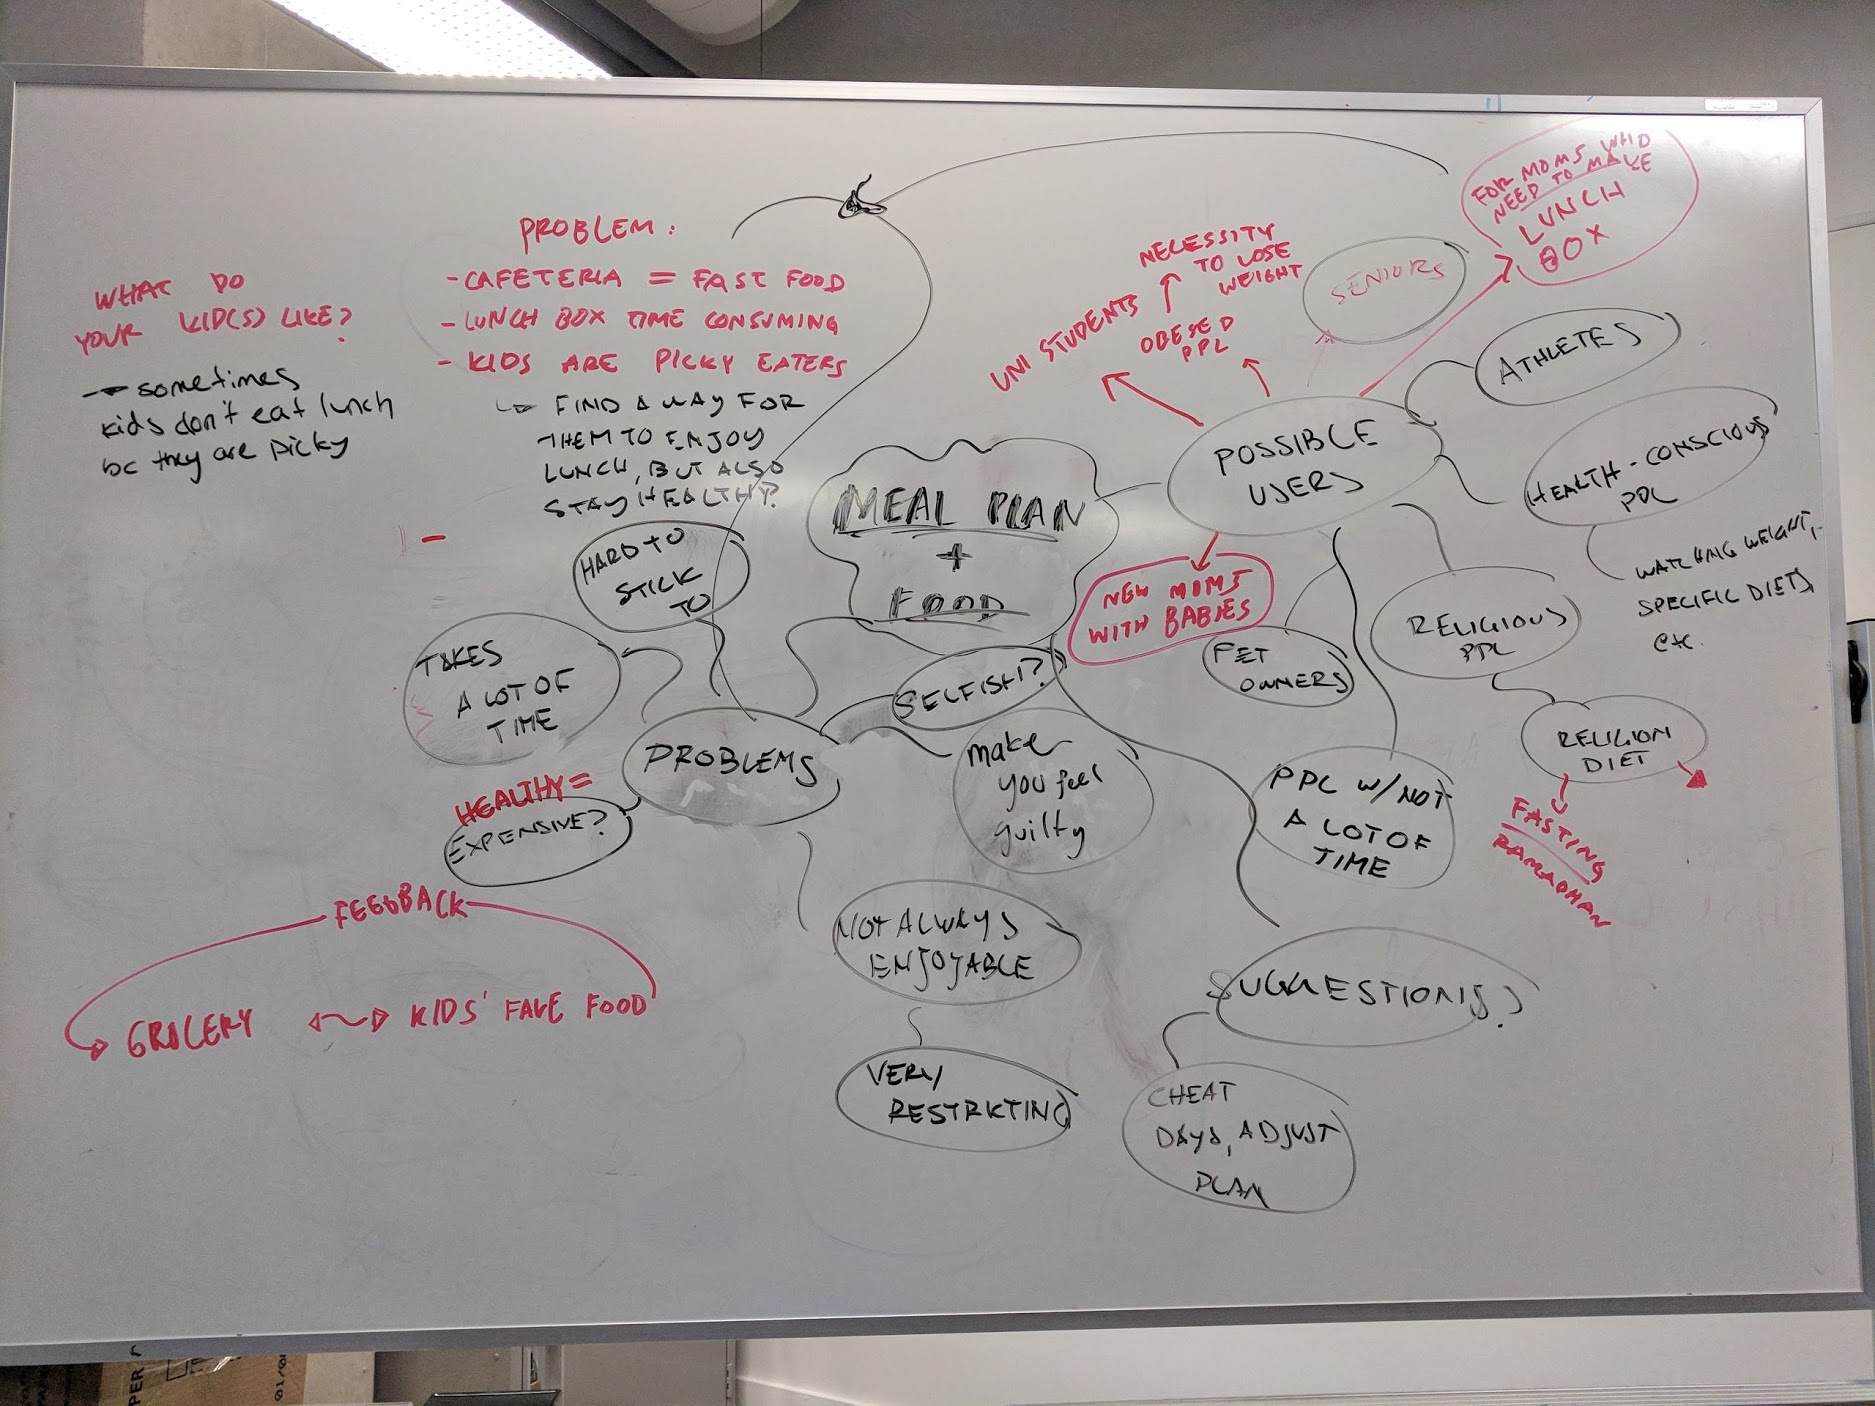 WHAT DO
YOUR KID(S) LIKE?
sometimes
kids don't eat lunch
bc they are picky
PROBLEM:
- CAFETERIA = FAST FOOD
- LUNCH BOX TIME CONSUMING
- KIDS ARE PICKY EATERS
FIND A WAY FOR
THEM TO ENJOY
LUNCH, BUT ALSO
STAY HEALTHY?
MEAL PLAN
+
FOOD
POSSIBLE
USERS
UNI STUDENTS
NECESSITY
TO LOSE
WEIGHT
OBESED
PPL
SENIORS
FOR MOMS WHO
NEED TO MAKE
LUNCH
BOX
ATHLETES
HEALTH-CONSCIOUS
PPL
WATCHING WEIGHT,
SPECIFIC DIETS,
etc.
RELIGIOUS
PPL
RELIGION
DIET
FASTING
RAMADHAN
NEW MOMS
WITH BABIES
PET
OWNERS
PPL W/ NOT
A LOT OF
TIME
SUGGESTIONS?
CHEAT
DAYS, ADJUST
PLAN
PROBLEMS
HARD TO
STICK
TO
TAKES
A LOT OF
TIME
HEALTHY =
EXPENSIVE?
SELFISH?
make
you feel
guilty
NOT ALWAYS
ENJOYABLE
VERY
RESTRICTING
FEEDBACK
GROCERY
KIDS' FAVE FOOD